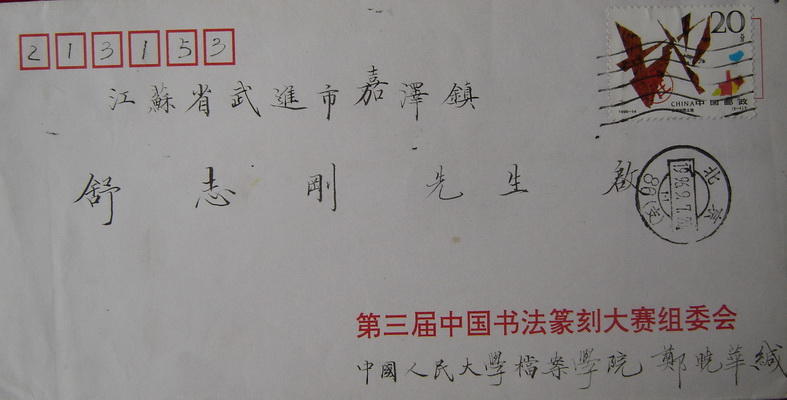 213153
20
江蘇省武進市嘉澤鎮
CHINA 中国邮政
舒志剛 先生 啟
北京
第三届中国书法篆刻大赛组委会
中國人民大學檔案學院 鄭曉華緘